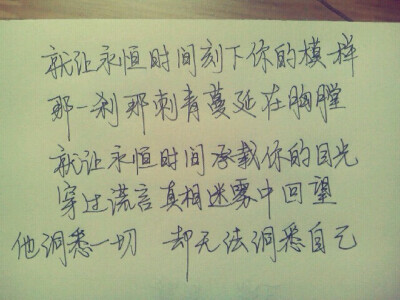 就让永恒时间刻下你的模样
那一刹那刺青蔓延在胸膛
就让永恒时间承载你的目光
穿过谎言真相迷雾中回望
他洞悉一切 却无法洞悉自己